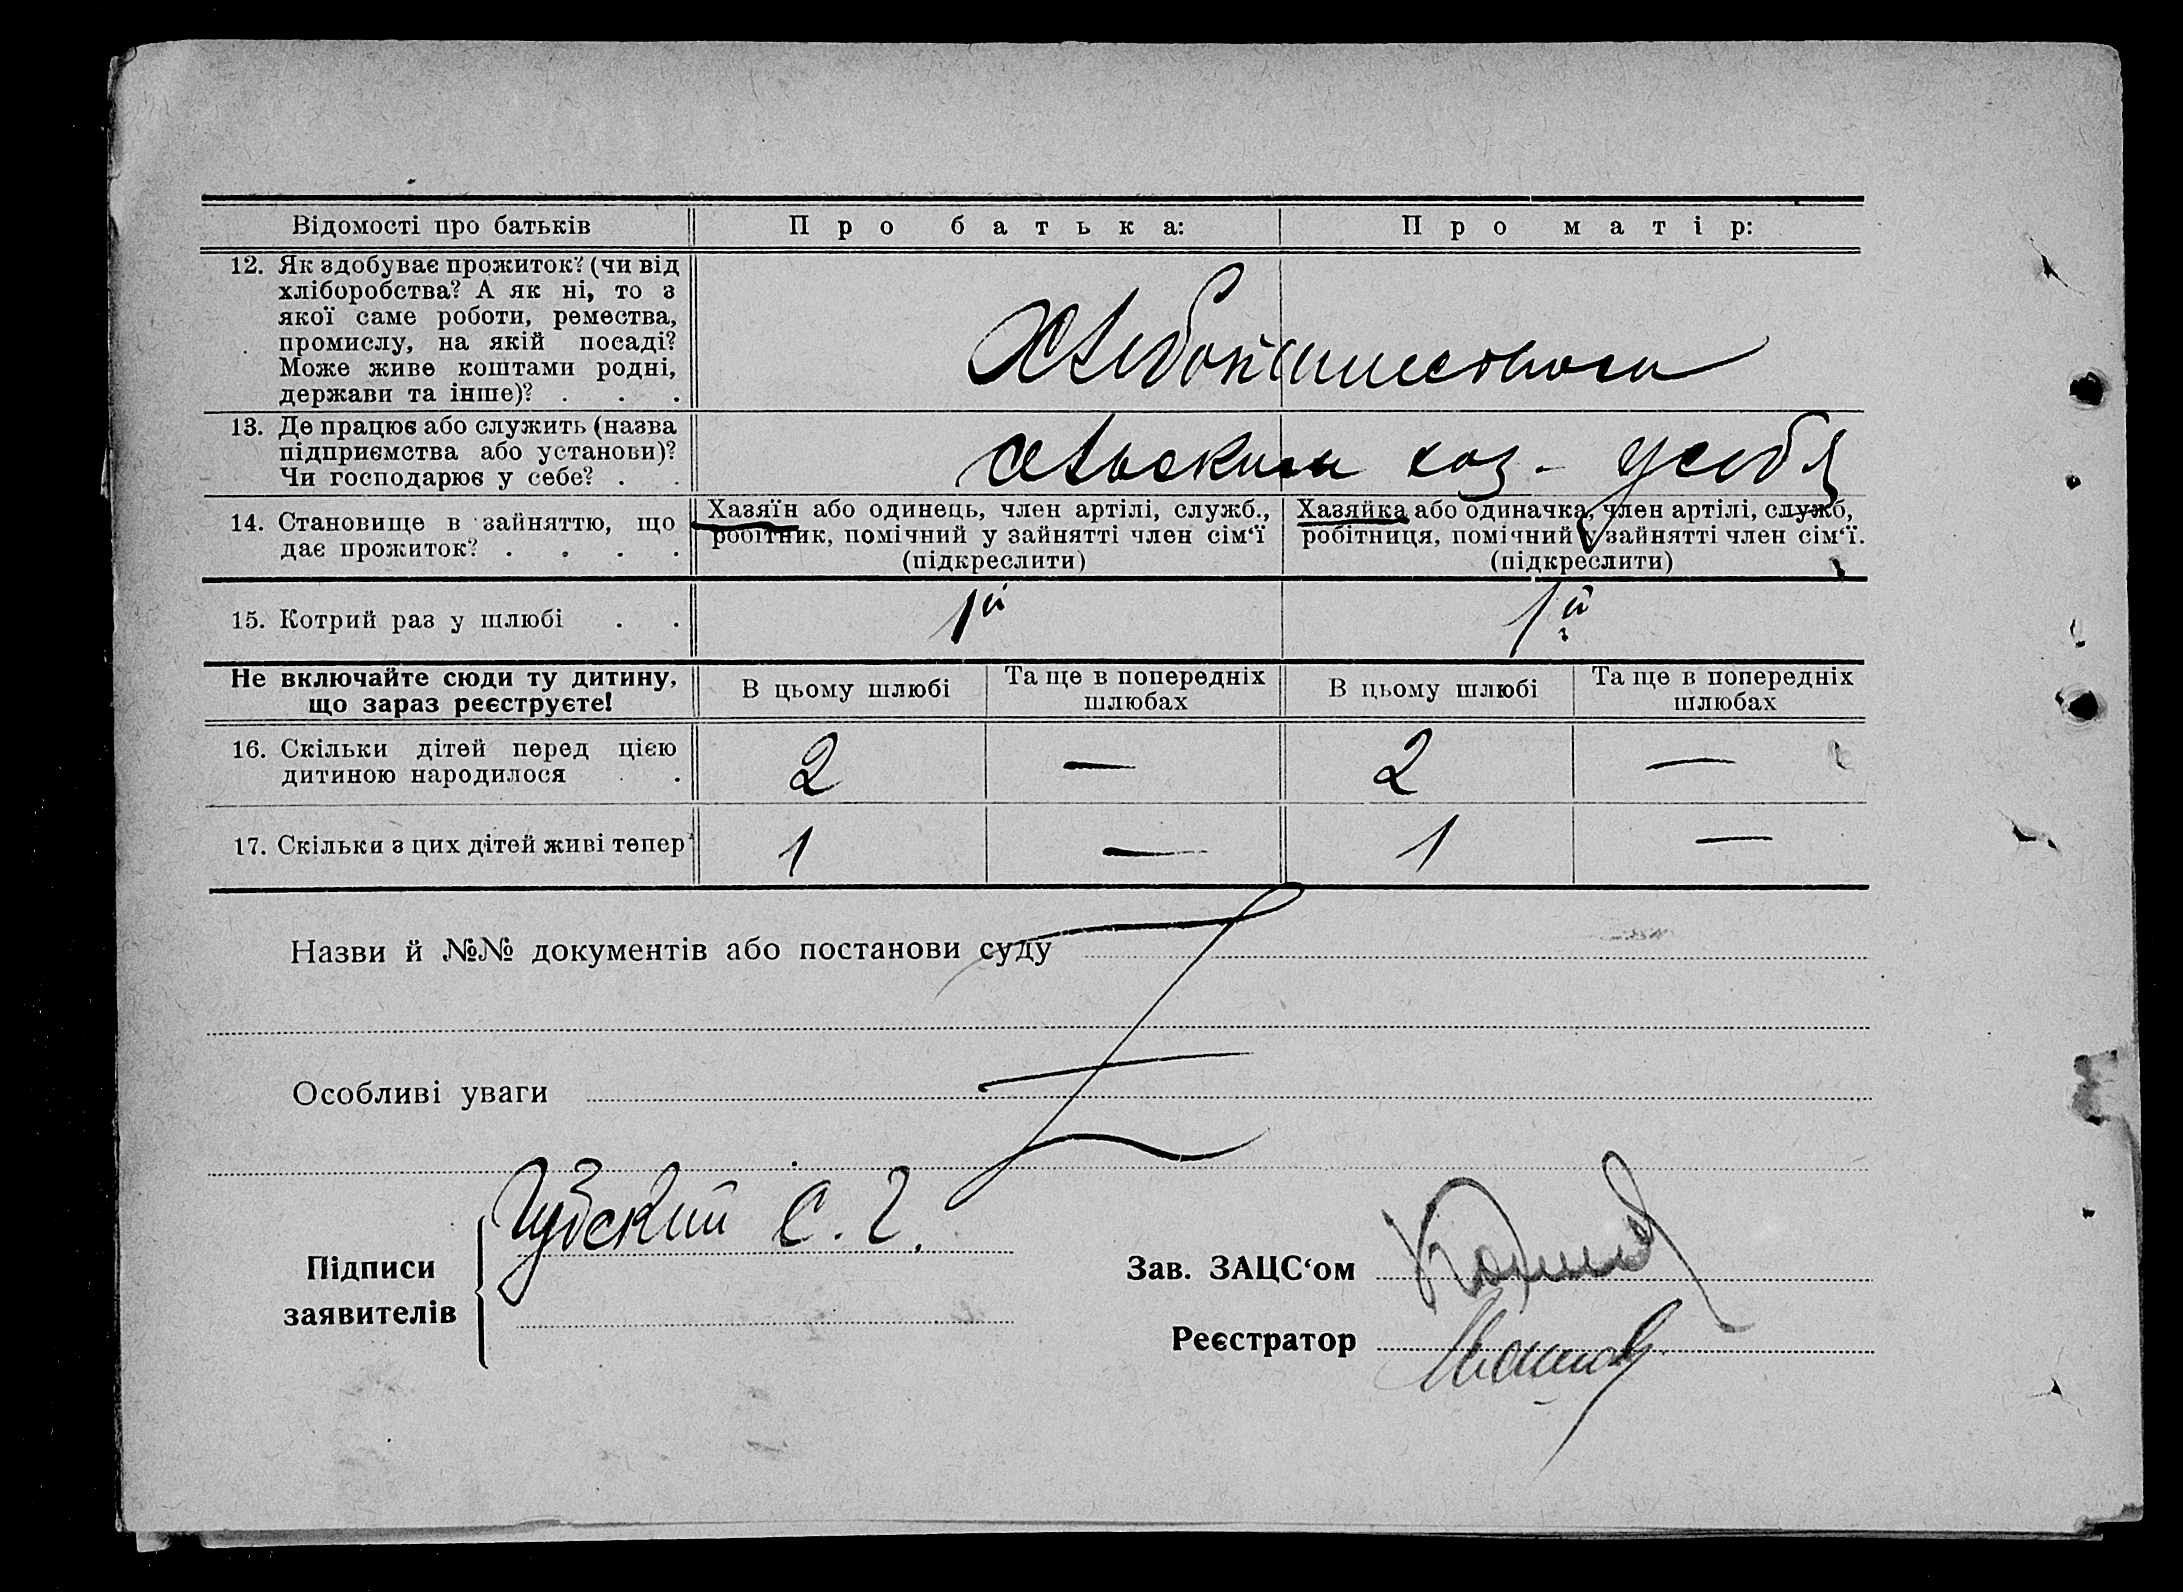 Відомості про батьків
Про батька:
Про матір:
12. Як здобуває прожиток? (чи від
хліборобства? А як ні, то з
якої саме роботи, ремества,
промислу, на якій посаді?
Може живе коштами родні,
держави та інше)? . . .
Хлебопашеством
13. Де працює або служить (назва
підприємства або установи)?
Чи господарює у себе? . .
сельским хоз- у себя
14. Становище в зайняттю, що
дає прожиток? . . . .
Хазяїн або одинець, член артілі, служб.,
робітник, помічний у зайнятті член сім‘ї
(підкреслити)
Хазяйка або одиначка, член артілі, служб,
робітниця, помічний у зайнятті член сім‘ї.
(підкреслити)
15. Котрий раз у шлюбі . .
1й
1й
Не включайте сюди ту дитину,
що зараз реєструєте!
В цьому шлюбі
Та ще в попередніх
шлюбах
В цьому шлюбі
Та ще в попередніх
шлюбах
16. Скільки дітей перед цією
дитиною народилося . .
2 — 2 —
17. Скільки з цих дітей живі тепер
1 — 1 —
Назви й №№ документів або постанови суду
Особливі уваги
Підписи
заявителів
С. Г.
Зав. ЗАЦС‘ом
Реєстратор